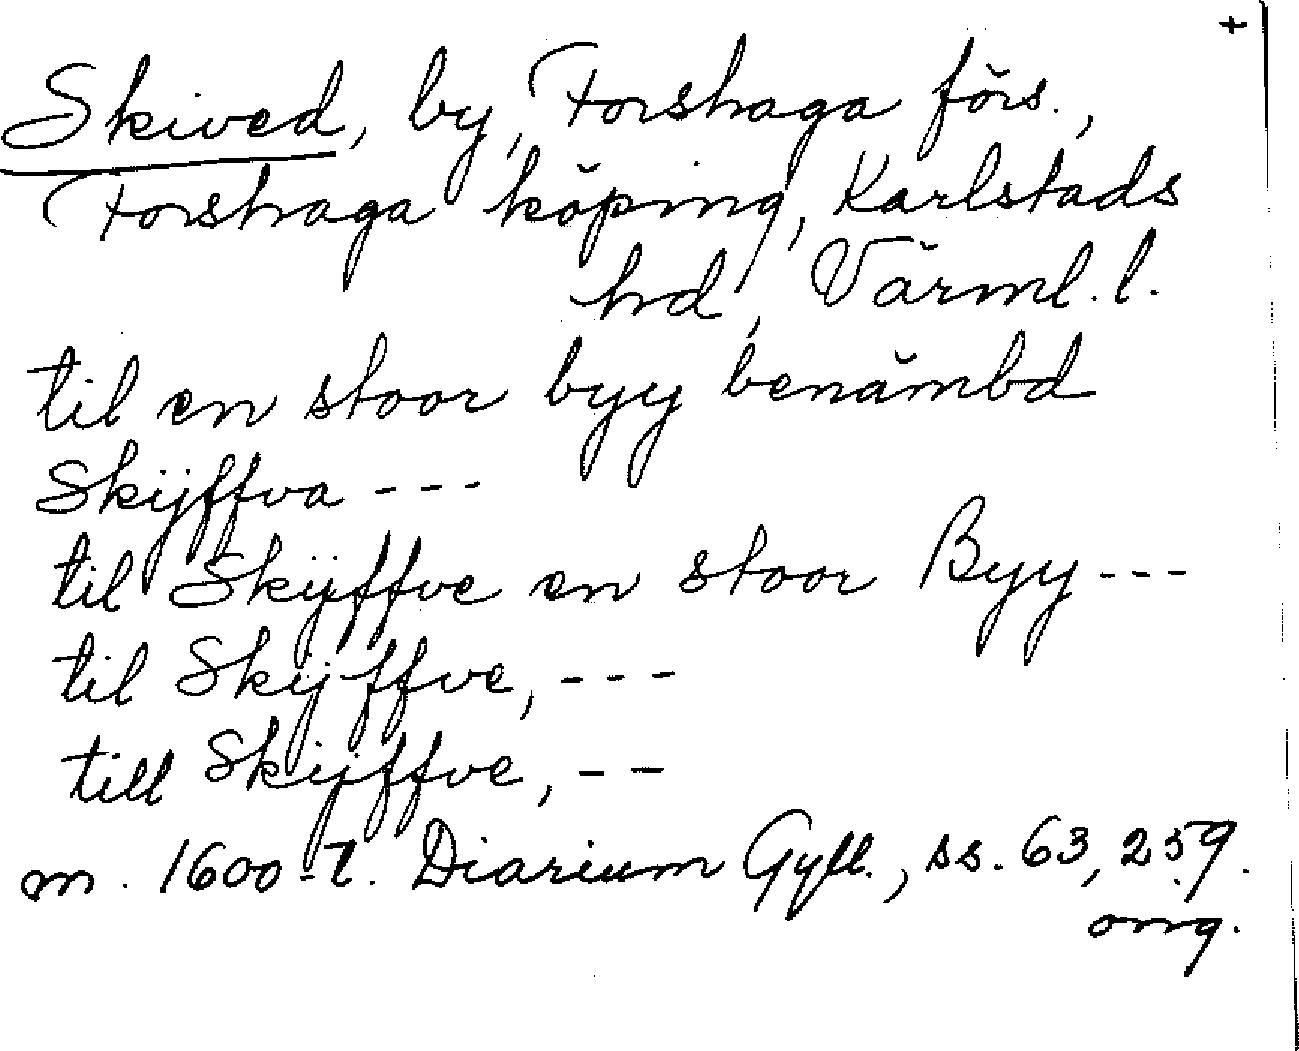 +
Skived, by, Forshaga förs.,
Forshaga köping, Karlstads
hd, Värml. l.
til en stoor byy benämbd
Skijffva ---
til Skijffve en stoor Byy ---
til Skijffve, ---
till Skijffve, --
m. 1600-t. Diarium Gyll., ss. 63, 259.
orig.